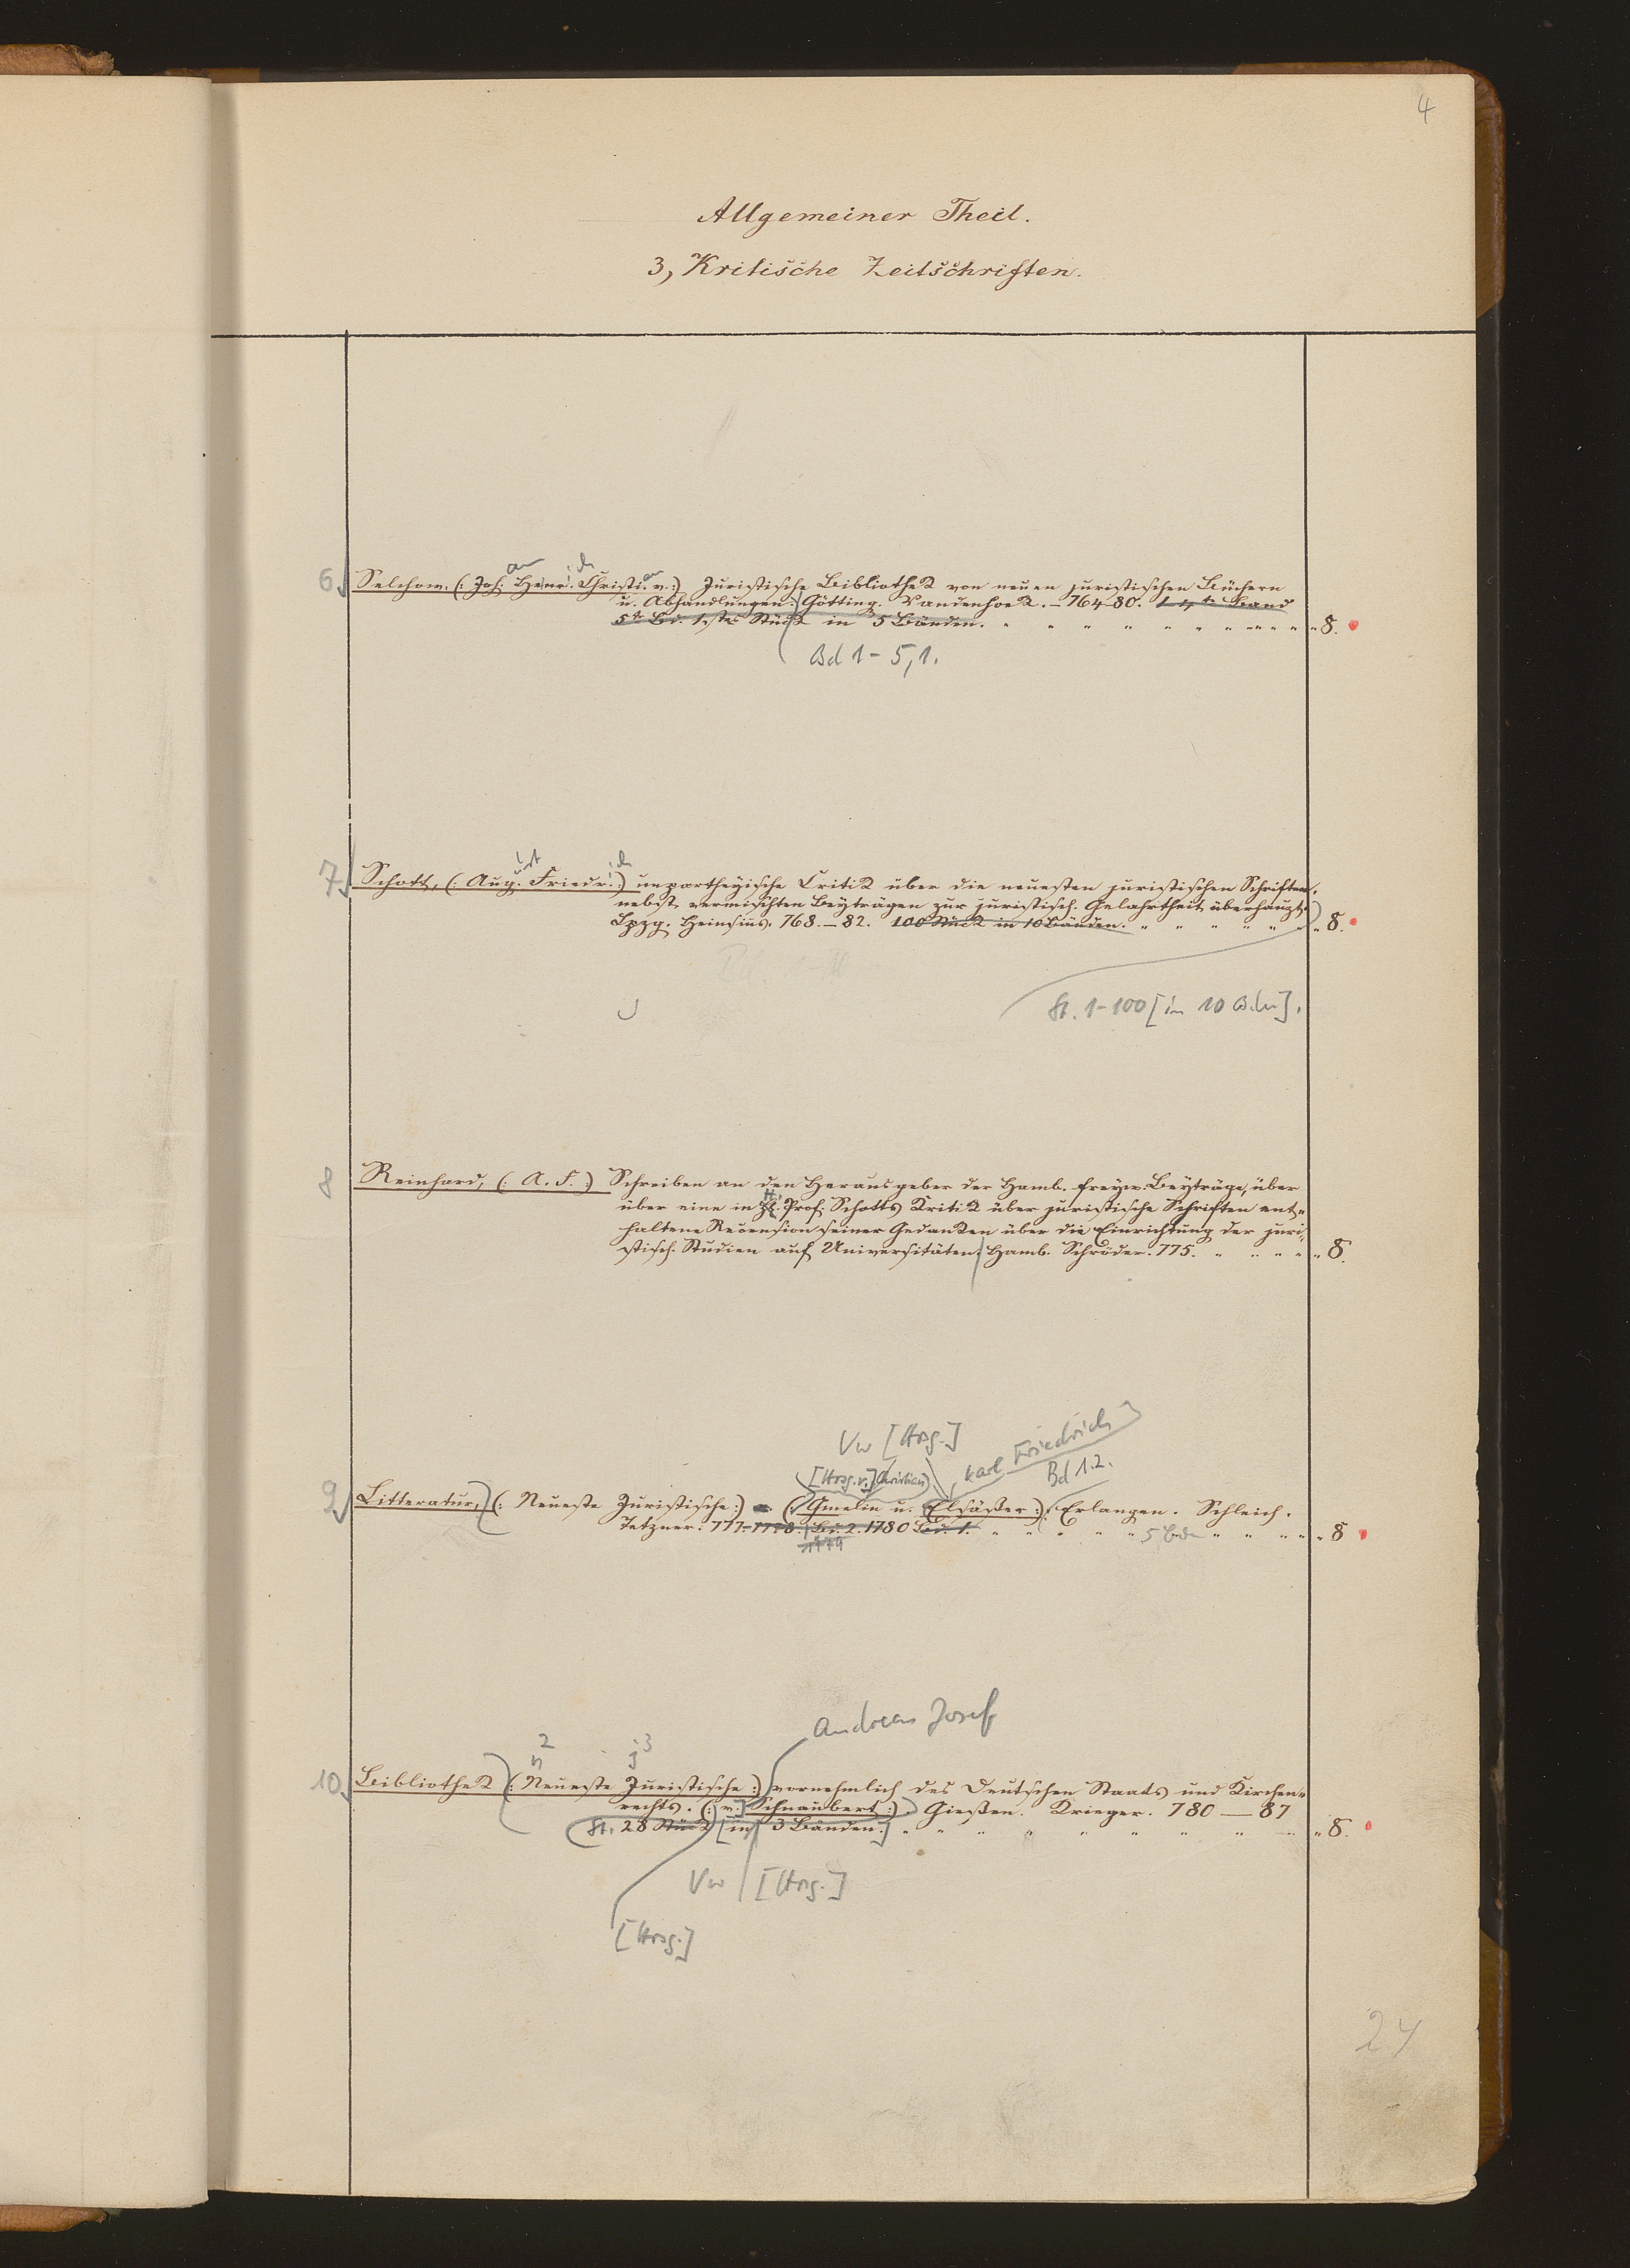 4
Allgemeiner Theil.
3, Kritische Zeitschriften.
an ich an
6 Selchow, (: Joh. Henr. Christi. v. :) Juristische Bibliothek von neuen juristischen Büchern
u. Abhandlungen. Götting. Vandenhoek. – 764–80. 1–4r. Band
5r. Bd. 1stes Stück in 5 Bänden. " " " " " " " " " " " 8.
Bd 1–5,1.
ust ich
7 Schott, (: Aug. Friedr. :) unpartheyische Critik über die neuesten juristischen Schriften.
nebst vermischten Beyträgen zur juristisch. Gelahrtheit überhaupt.
Lpzg. Heinsius. 768.–82. 100 Stück in 10 Bänden. " " " " " " " 8.
St. 1–100 [in 10 Bdn].
8 Reinhard, (: A. F. :) Schreiben an den Herausgeber der Hamb. freyw. Beyträge, über
über eine in H. Prof. Schotts Kritik über juristische Schriften ent=
haltene Recension seiner Gedanken über die Einrichtung der juri=
stisch. Studien auf Universitäten. Hamb. Schröder. 775. " " " " " 8.
Vw [Hrsg.]
Karl Friedrich
[Hrsg. v.] Christian
Bd 1.2.
9 Litteratur, (: Neueste Juristische :) – (: Gmelin u. Elsäßer :) Erlangen. Schleich.
Tetzner. 777–1778. Bd. 2. 1780 Bd. 1. " " " " " 5 Bde " " " " " 8
1779
Andreas Josef
2 3
n j
10 Bibliothek (: Neueste Juristische :) vornehmlich des Deutschen Staats und Kirchen=
rechts. (: v.] Schnaubert :) Gießen. Krieger. 780 — 87
St. 28 Stück [in 3 Bänden.] " " " " " " " " " " 8.
Vw [Hrsg.]
[Hrsg.]
24